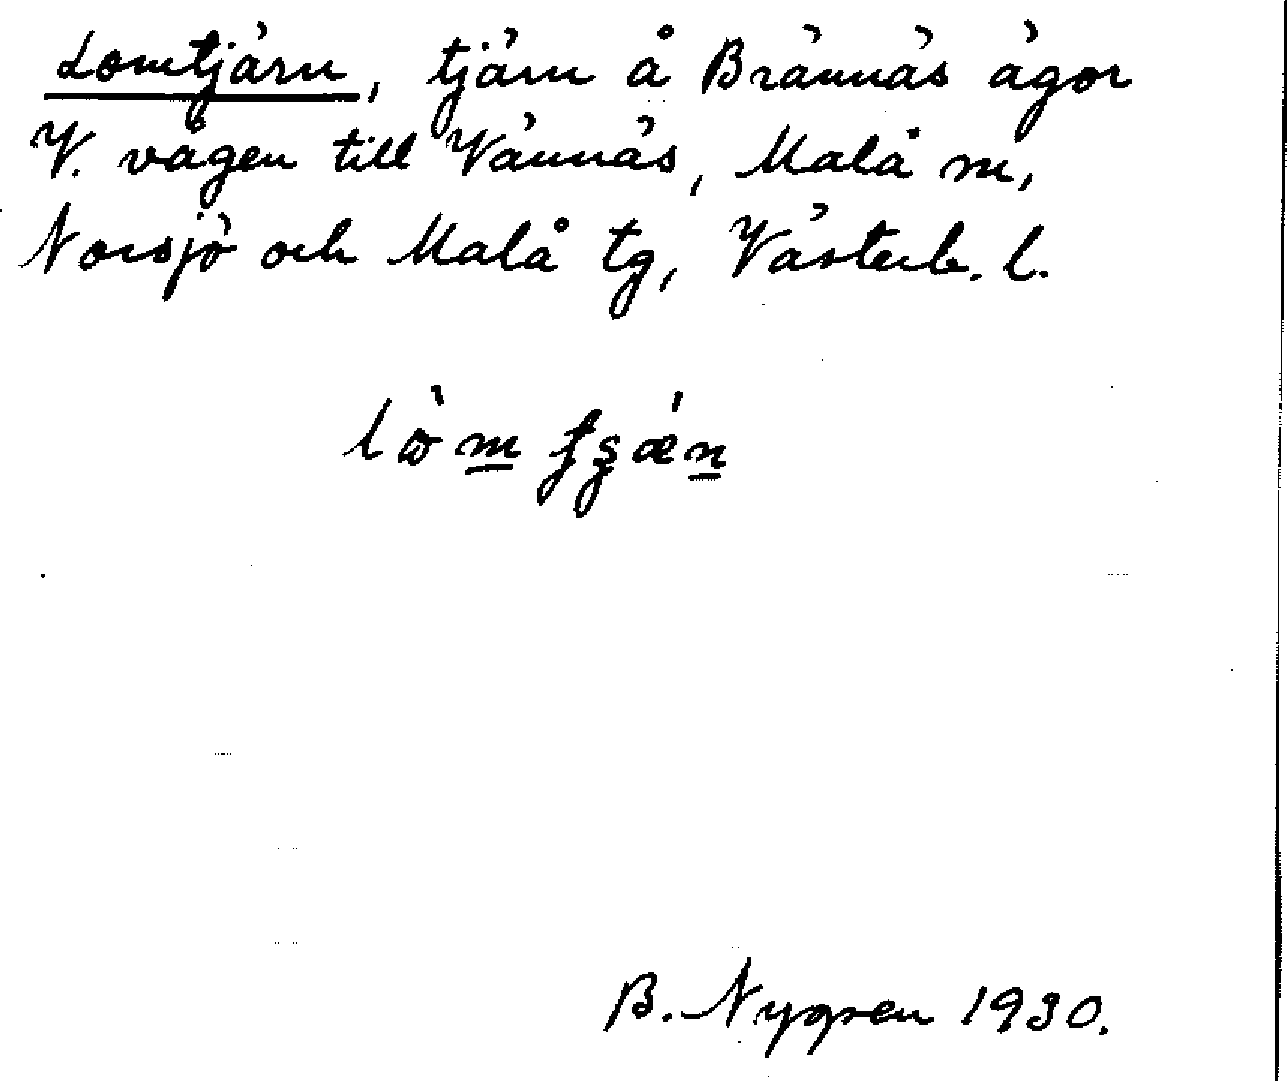 Lomtjärn, tjärn å Brännäs ägor
V. vägen till Vännäs, Malå m,
Norsjö och Malå tg, Västerb. l.
B. Nygren 1930.